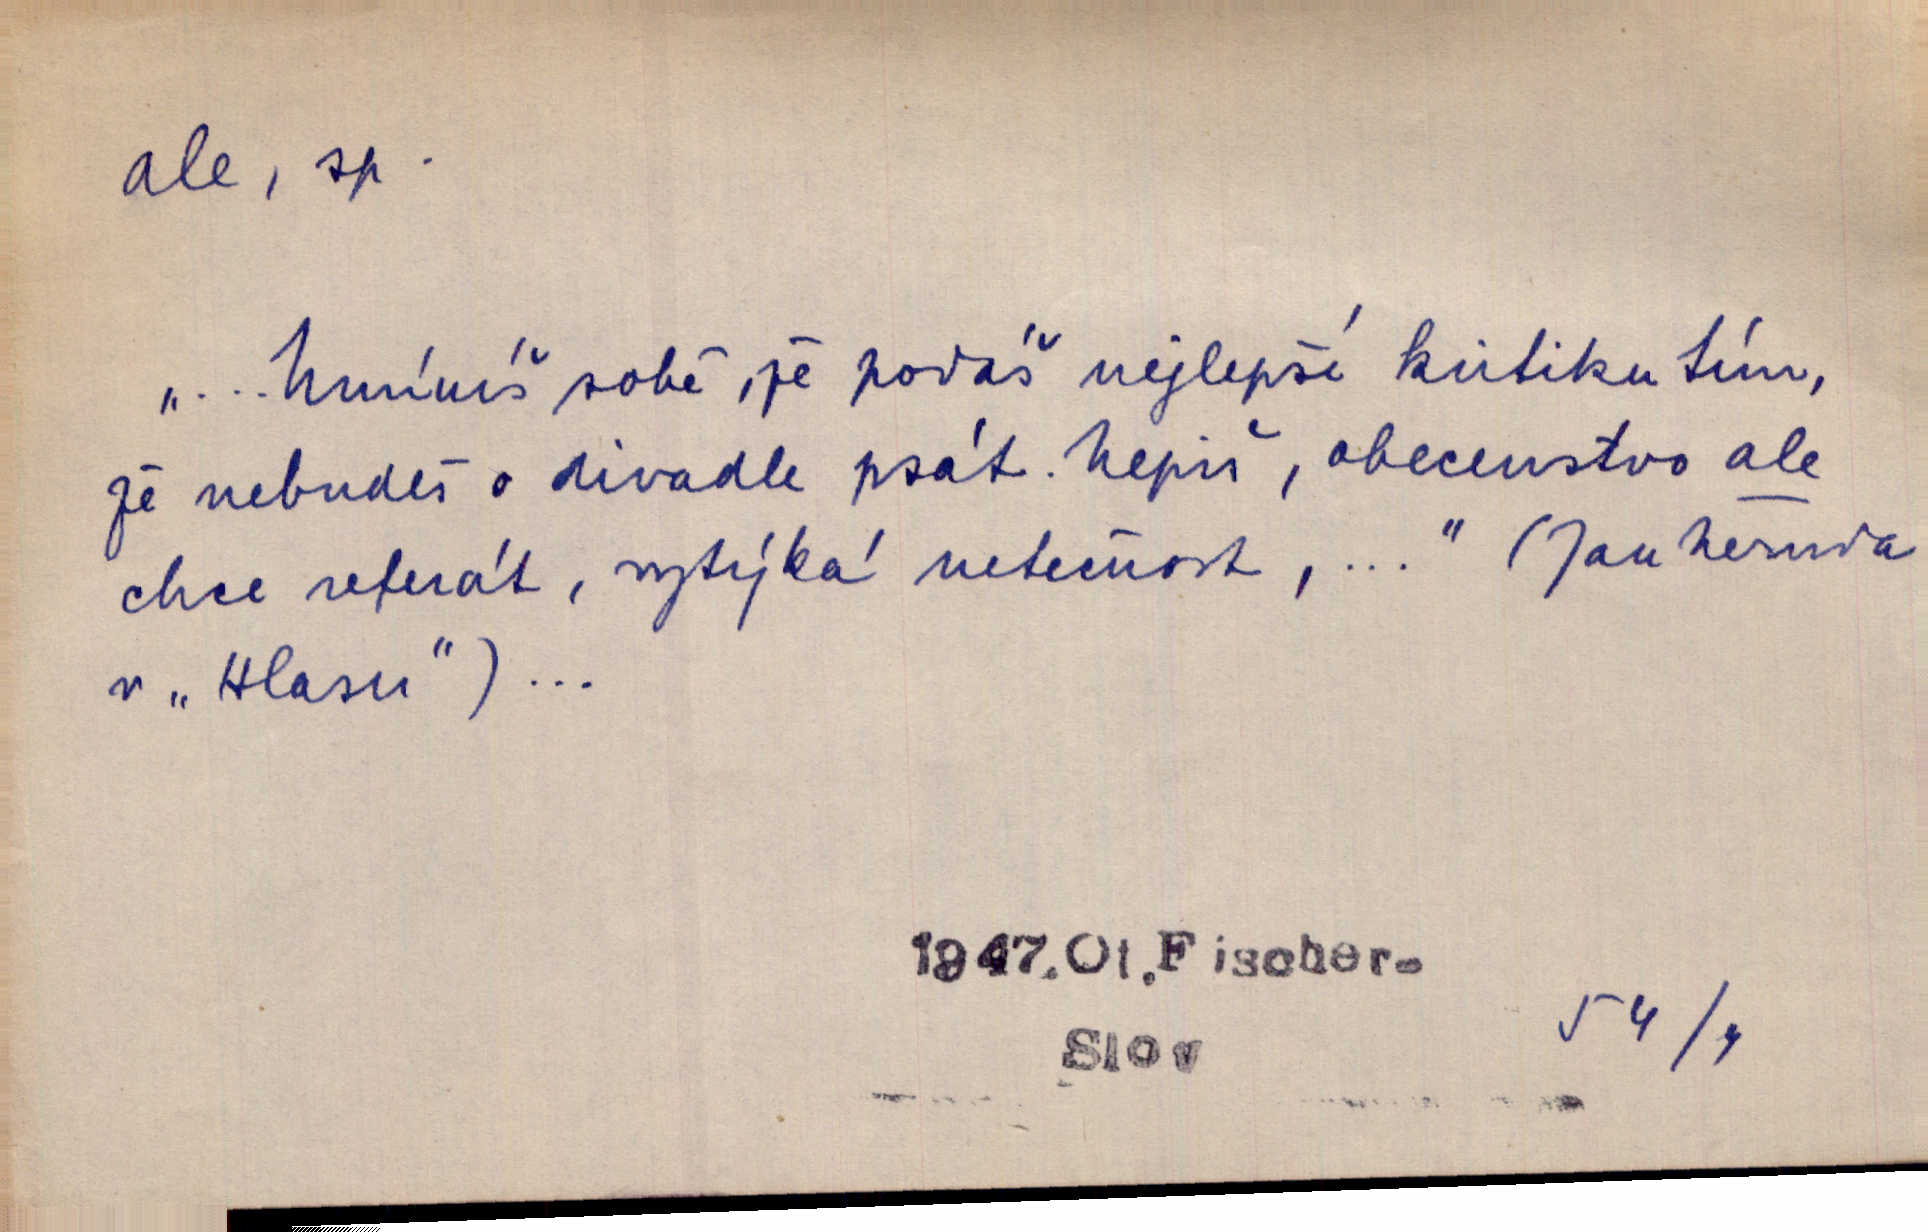 ale, sp.
„...Umíniš sobě, že podáš nejlepší kritiku tím,
že nebudeš o divadle psát. Nepiš, obecenstvo ale
chce referát, vytýká netečnost, ..." (Jan Neruda
v „Hlasu") ...
1947.Ot.Fischer-
Slov
54/4